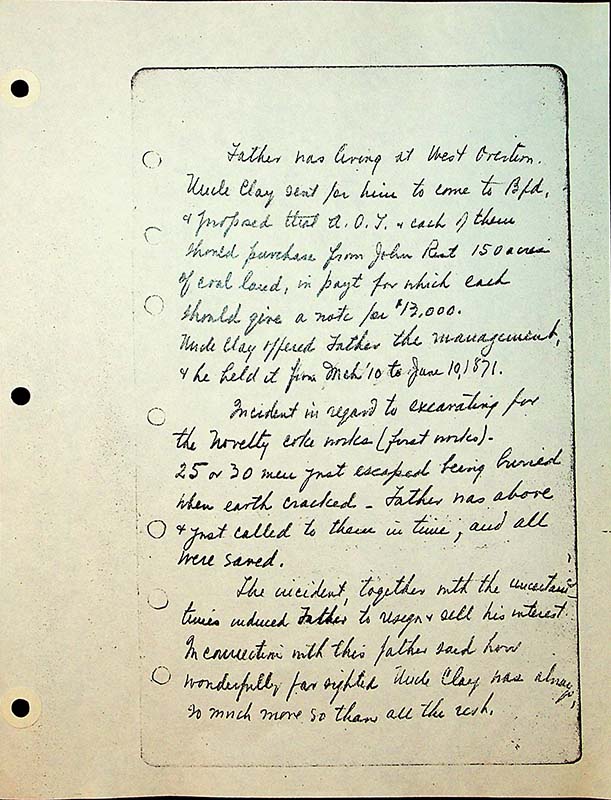 Father was living at West Overton.
Uncle Clay sent for him to come to Bfd,
& proposed that A.O.T. & each of them
should purchase from John Rist 150 acres
of coal land, in payt for which each
should give a note for $13,000.
Uncle Clay offered Father the management,
& he held it from Mch '10 to June 10, 1871.
Incident in regard to excavating for
the Novelty coke works (first works) -
25 or 30 men just escaped being buried
when earth cracked - Father was above
& just called to them in time, and all
were saved.
The incident, together with the uncertain
times induced Father to resign & sell his interest.
In connection with this father said how
wonderfully far sighted Uncle Clay was always,
so much more so than all the rest.